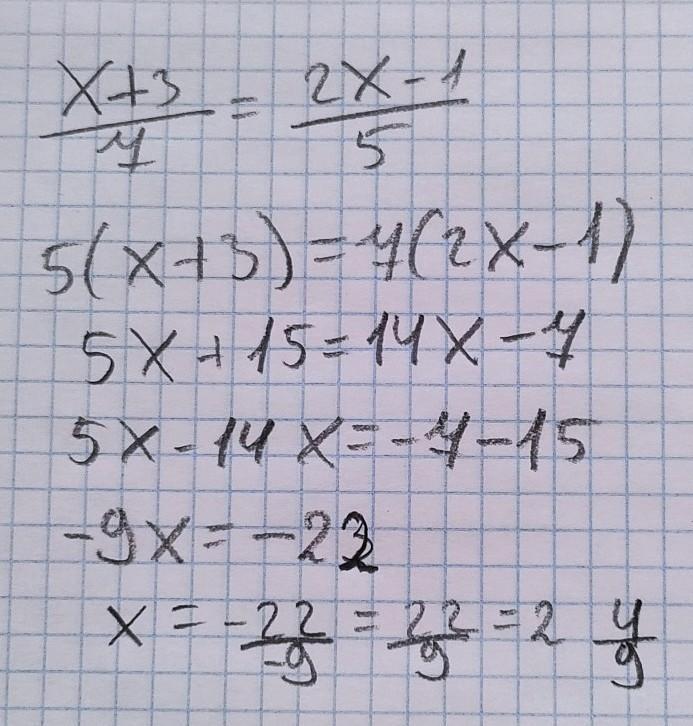 x+3/7 = 2x-1/5
5(x+3)=7(2x-1)
5x+15=14x-7
5x-14x=-7-15
-9x=-22
x = -22/-9 = 22/9 = 2 4/9